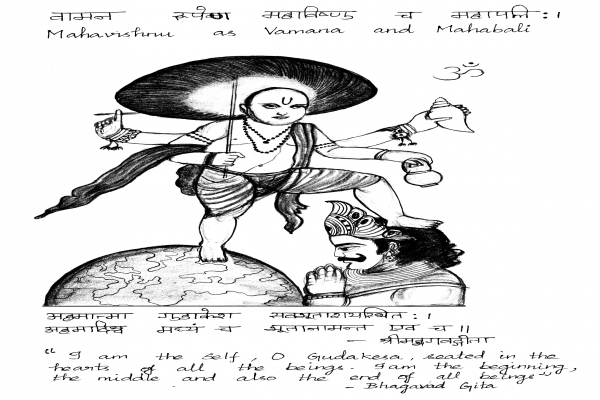 वामन रूपेण महाविष्णु च महाबलि : ।
Mahavishnu as Vamana and Mahabali
ॐ
अहमात्मा गुडाकेश सर्वभूताशयस्थित : ।
अहमादिश्च मध्यं च भूतानामन्त एव च ॥
- श्रीमद्भगवद्गीता
" I am the Self, O Gudakesa, seated in the
hearts of all the beings. I am the beginning,
the middle and also the end of all beings"
- Bhagavad Gita